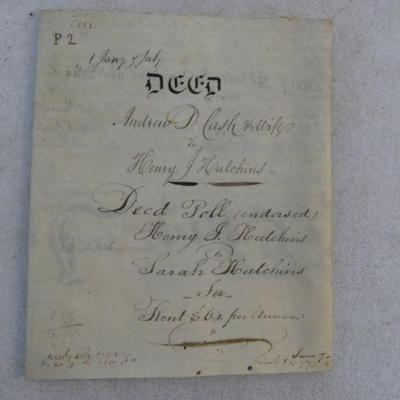 P 2
1 Jany & July
DEED
Andrew D. Cash & Wife
to
Henry J. Hutchins
Deed Poll (endorsed)
Henry J. Hutchins
to
Sarah Hutchins
for
Rent $64. per Annum